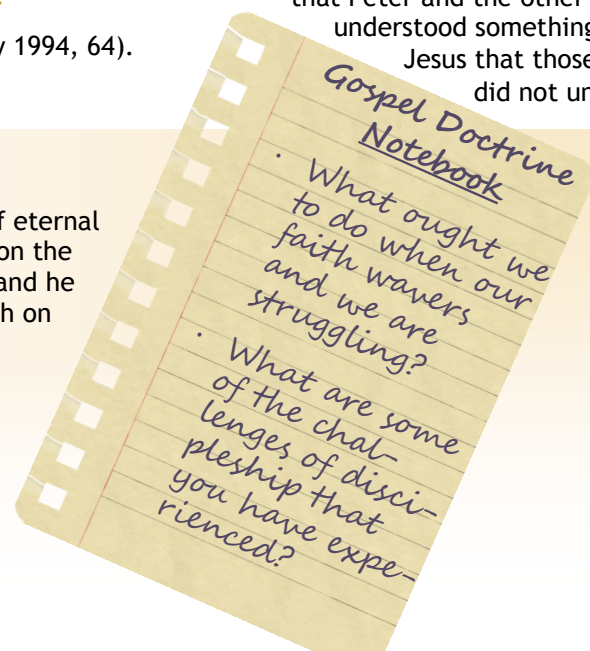 y 1994, 64).
that Peter and the other
understood something
Jesus that those
did not un
f eternal
on the
and he
h on
Gospel Doctrine
Notebook
· What ought we
to do when our
faith wavers
and we are
struggling?
· What are some
of the chal-
lenges of disci-
pleship that
you have expe-
rienced?